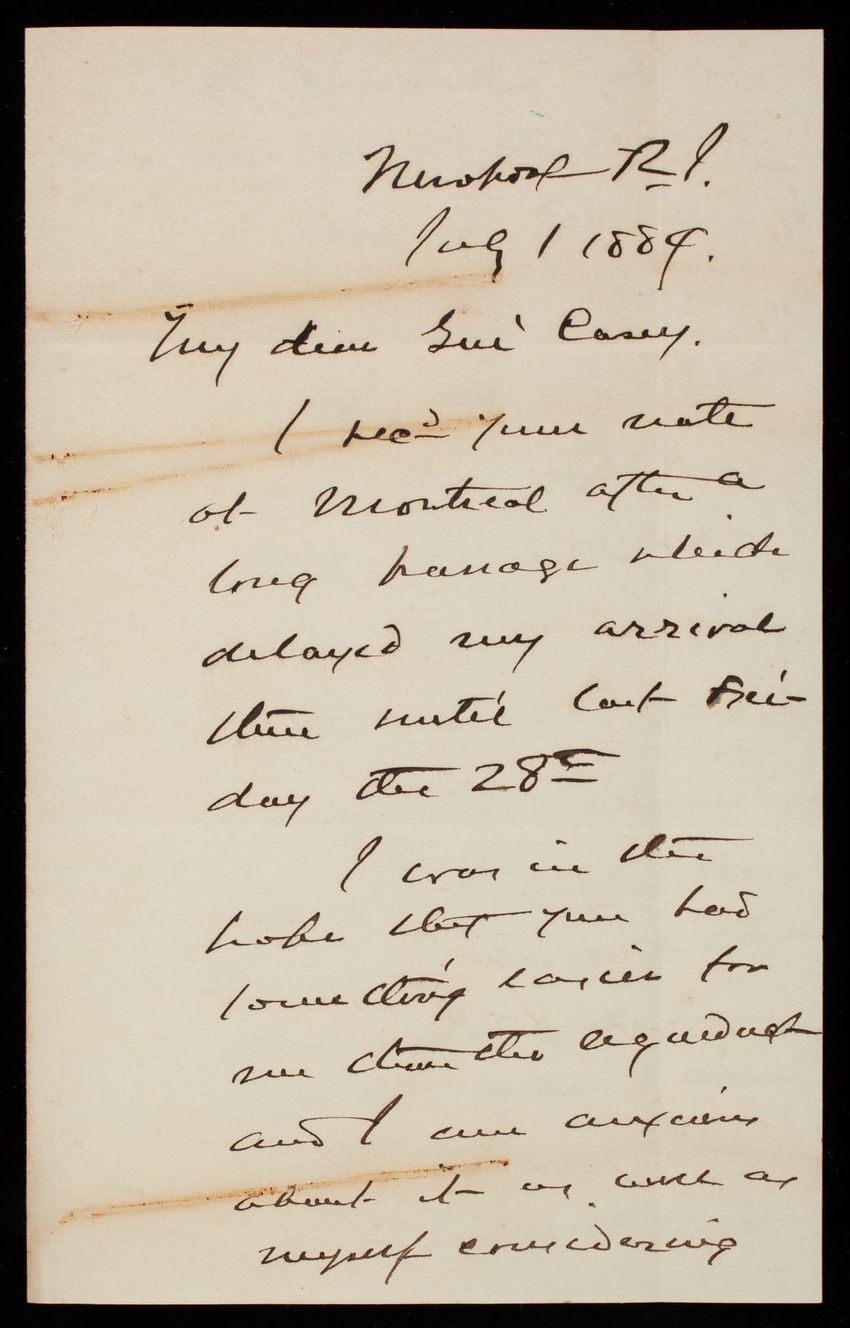 Newport R.I.
July 1 1884.
My dear Gen'l Casey.
I rec'd your note
at Montreal after a
long passage which
delayed my arrival
there until last Fri-
day the 28th
I was in the
hope that you had
something easier for
me than the aqueduct
and I am anxious
about it as well as
myself considering